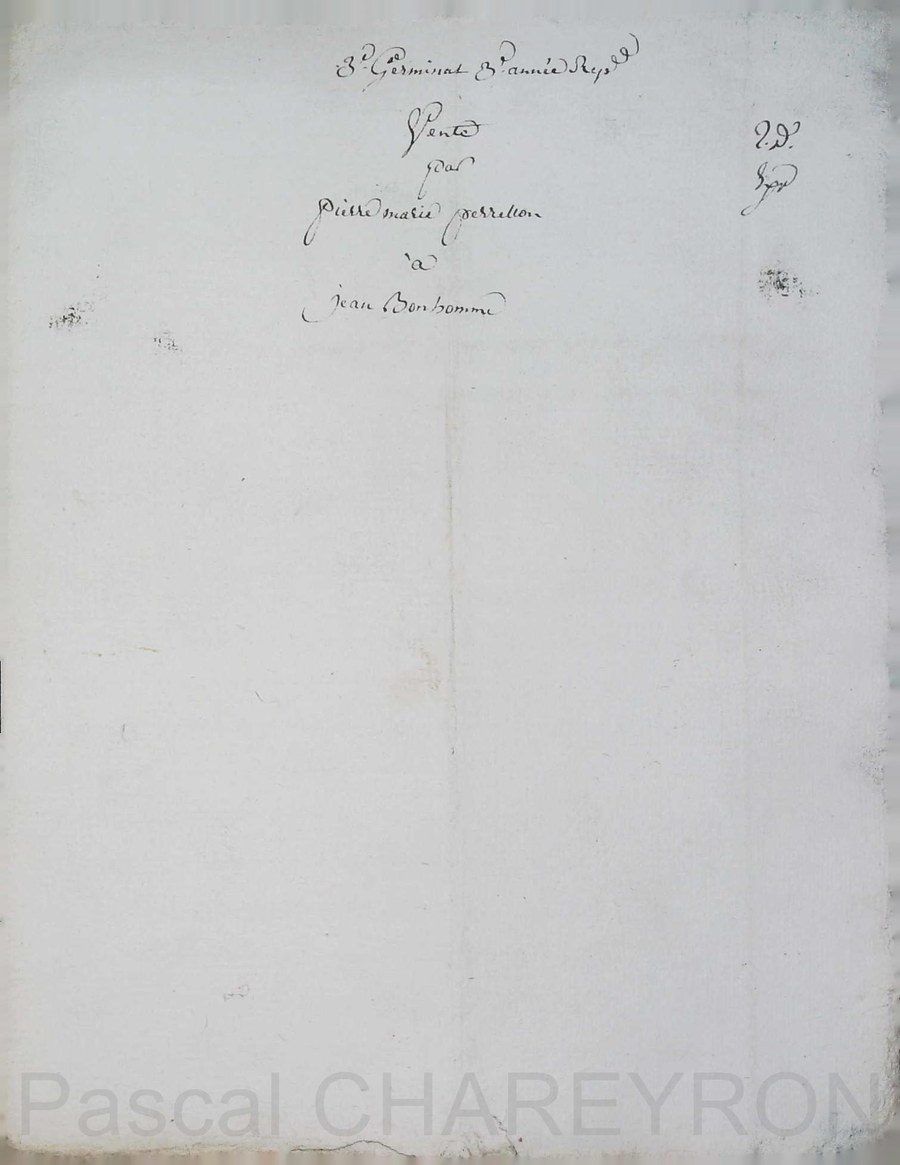 3e Germinal 3e année Repdd
Vente
par
pierre marie perrellon
à
jean Bonhomme
2. D.
Pascal CHAREYRON